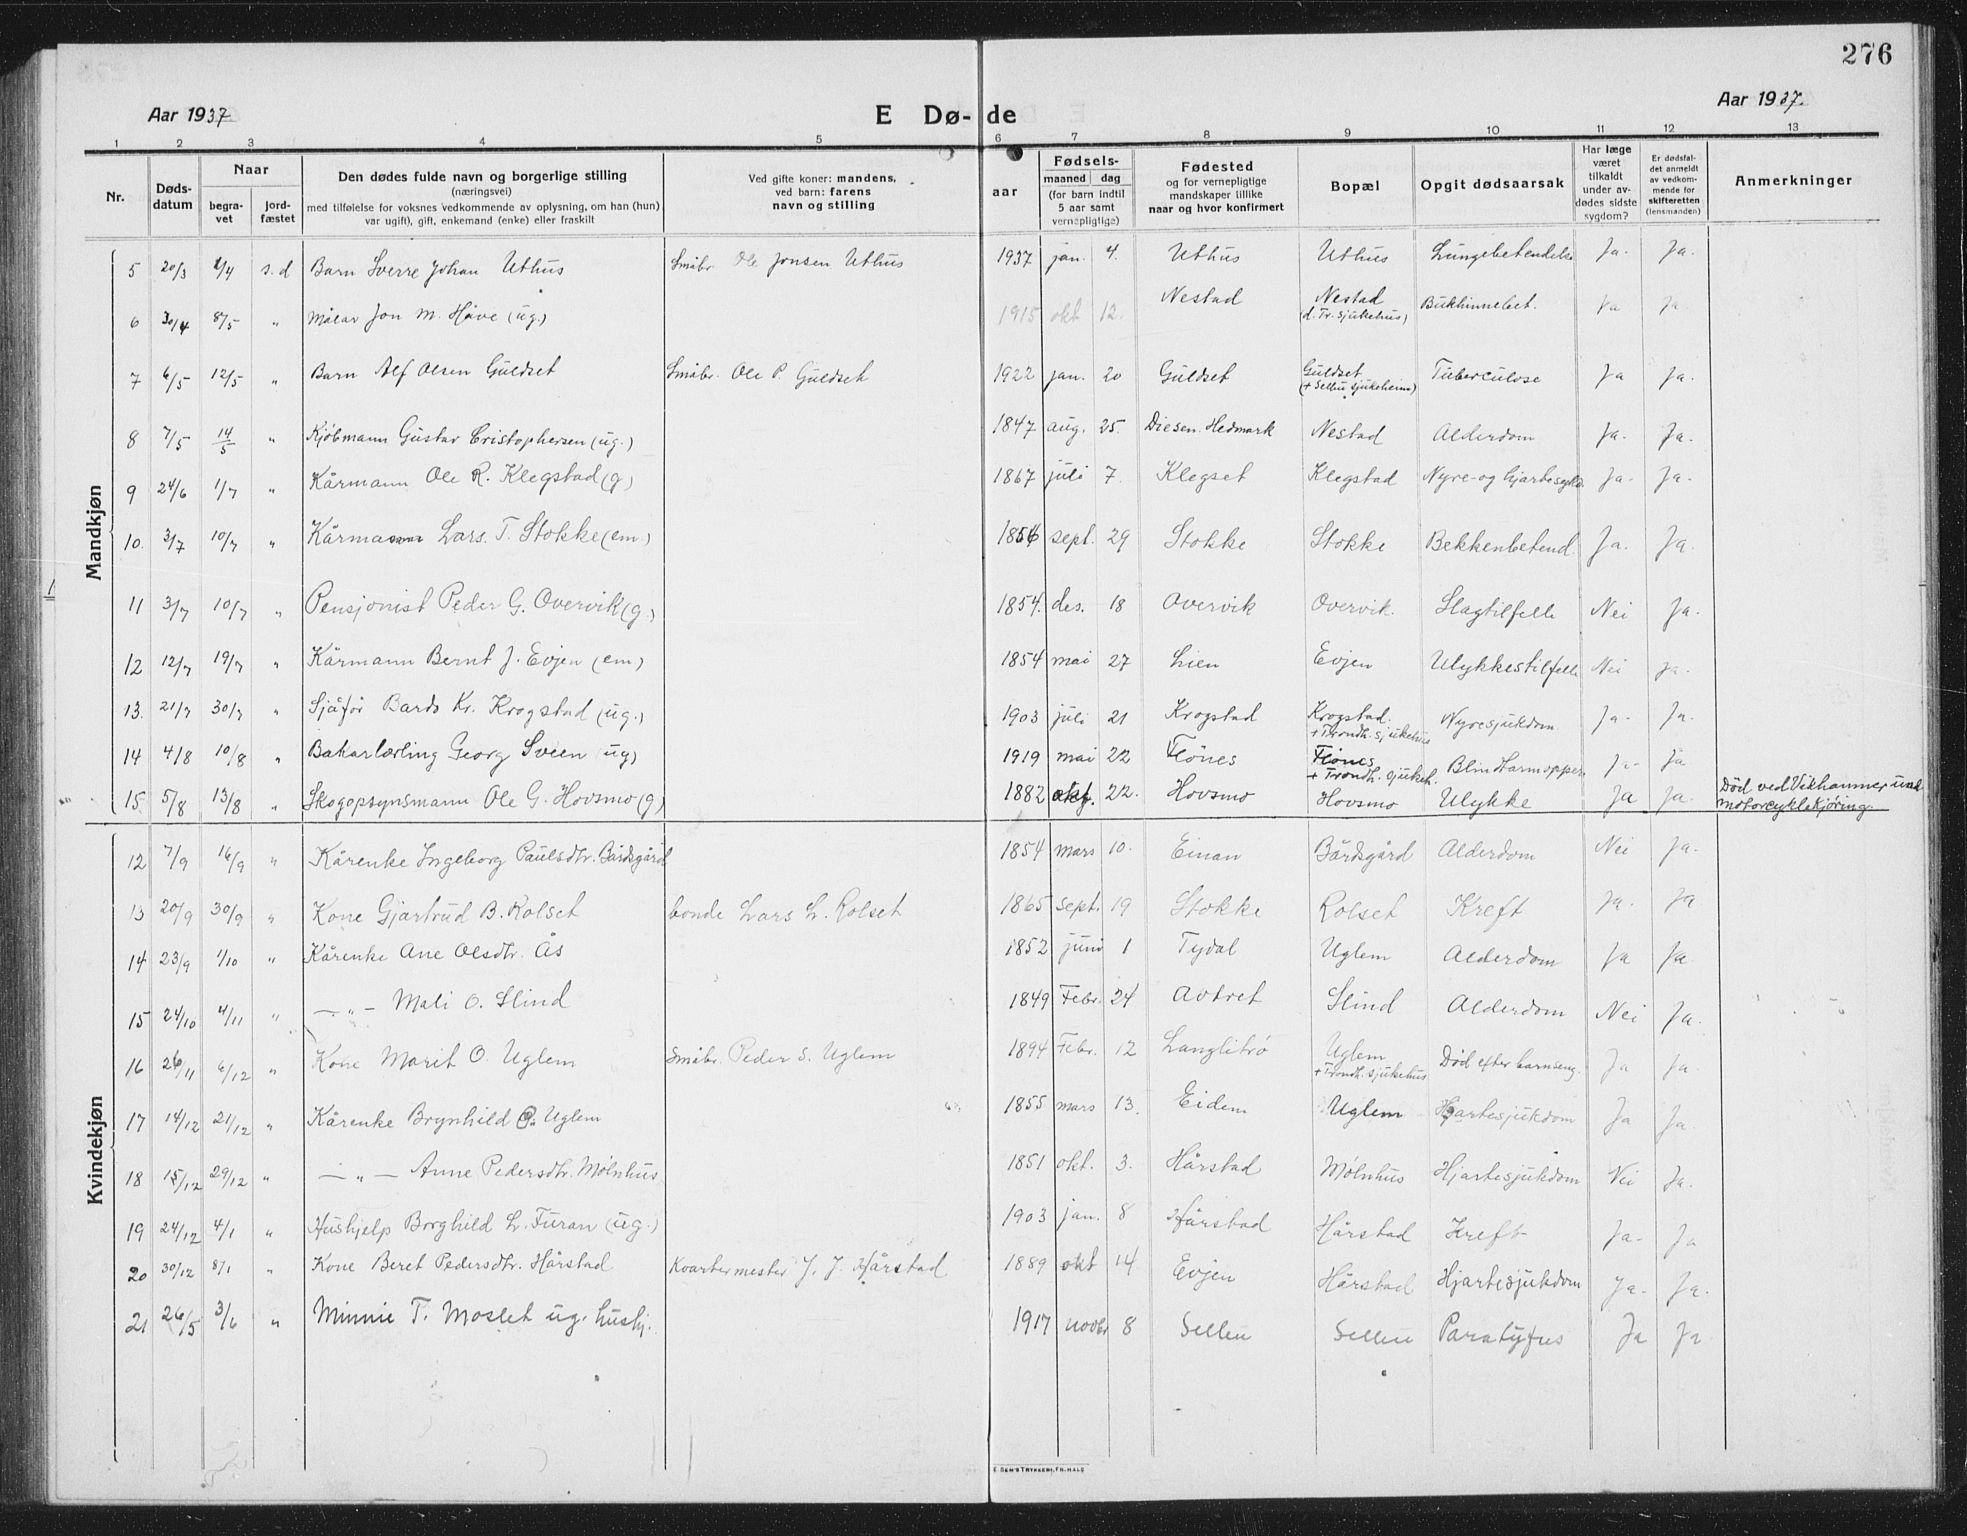 276
Aar 1937
E Dø-de
Aar 1937.
1 2 3 4 5 6 7 8 9 10 11 12 13
Nr.
Døds-
datum
Naar
begra-
vet
jord-
fæstet
Den dødes fulde navn og borgerlige stilling
(næringsvei)
med tilføielse for voksnes vedkommende av oplysning, om han (hun)
var ugift), gift, enkemand (enke) eller fraskilt
Ved gifte koner: mandens,
ved barn: farens
navn og stilling
aar
Fødsels-
maaned dag
(for barn indtil
5 aar samt
vernepligtige)
Fødested
og for vernepligtige
mandskaper tillike
naar og hvor konfirmert
Bopæl
Opgit dødsaarsak
Har læge
været
tilkaldt
under av-
dødes sidste
sygdom?
Er dødsfal-
det anmeldt
av vedkom-
mende for
skifteretten
(lensmanden)
Anmerkninger
Mandkjøn
5 20/3 1/4 s.d Barn Sverre Johan Uthus Småbr. Ole Jonsen Uthus 1937 jan. 4. Uthus Uthus Lungebetendelse Ja. Ja.
6 30/4 8/5 " Målar Jon M. Håve (ug.) 1915 okt 12. Nestad Nestad Bukhinnebet. Ja Ja.
(d. Tr. sjukehus)
7 6/5 12/5 " Barn Alf Olsen Guldset Småbr. Ole P. Guldset 1922 jan. 20 Guldset Guldset Tuberculose Ja Ja.
(+ Selbu sjukeheim)
8 7/5 14/5 " Kjøbmann Gustav Cristophersen (ug.) 1847 aug. 25. Diesen. Hedmark Nestad Alderdom Ja. Ja.
9 24/6 1/7 " Kårmann Ole R. Klegstad (g) 1867 juli 7. Klegset Klegstad Nyre- og hjartesykd. Ja- Ja-
10. 3/7 10/7 " Kårmann Lars. T. Stokke (em.) 1856 sept. 29 Stokke Stokke Bekkenbetend Ja. Ja.
11 3/7 10/7 " Pensjonist Peder G. Overvik (g.) 1854. des. 18 Overvik Overvik. Slagtilfelle Nei Ja.
12 12/7 19/7 " Kårmann Bernt J. Evjen (em.) 1854 mai 27 Lien Evjen Ulykkestilfelle Nei Ja.
13. 21/7 30/7 " Sjåfør Bards Kr. Krogstad (ug.) 1903 juli 21 Krogstad Krogstad. Nyresjukdom. Ja- Ja.
+ Trondh. sjukehus
14 4/8 10/8 " Bakarlærling Georg Sveen (ug) 1919 mai 22 Flønes Flønes Ja- Ja
+ Trondh. sjukeh.
15. 5/8 13/8 " Skogopsynsmann Ole G. Hovsmo (g) 1882 okt. 22. Hovsmo Hovsmo Ulykke Ja Ja. Død ved Vikhammer und
motorcykkelkjøring.
Kvindekjøn
12 7/9 16/9 " Kårenke Ingeborg Paulsdtr. Bårdsgård 1854 mars 10. Einan Bårdsgård Alderdom Nei Ja.
13 20/9 30/9 " Kone Gjartrud B. Rolset bonde Lars L. Rolset 1865 sept. 19 Stokke Rolset Kreft Ja. Ja
14 23/9 1/10 " Kårenke Ane Olsdtr. Ås 1852 juni 1 Tydal Uglem Alderdom Ja Ja.
15 24/10 4/11 " — " — Mali O. Slind 1849 Febr. 24 Avtret Slind Alderdom Nei Ja.
16 26/11 6/12 " Kone Marit O. Uglem Småbr. Peder S. Uglem 1894 Febr. 12 Langlitrø Uglem Død efter barnseng. Ja Ja.
+ Trondh. sjukehus
17 14/12 21/12 " Kårenke Brynhild P. Uglem 1855 mars 13. Eidem Uglem Hjartesjukdom Ja Ja.
18 15/12 29/12 " — " — Anne Pedersdtr. Mølnhus 1851 okt. 3. Hårstad Mølnhus Hjartesjukdom Nei Ja.
19 24/12 4/1 " Hushjelp Borghild L. Furan (ug.) 1903 jan. 8 Hårstad Hårstad Kreft Ja- Ja
20 30/12 8/1 " Kone Beret Pedersdtr. Hårstad Kvartermester J. J. Hårstad 1889 okt 14 Evjen Hårstad Hjartesjukdom Ja- Ja.
21 26/5 3/6 " Minnie T. Moslet ug. hushj. 1917 novbr 8 Selbu Selbu Paratyfus Ja Ja.
E. SEM'S TRYKKERI, FR.HALD